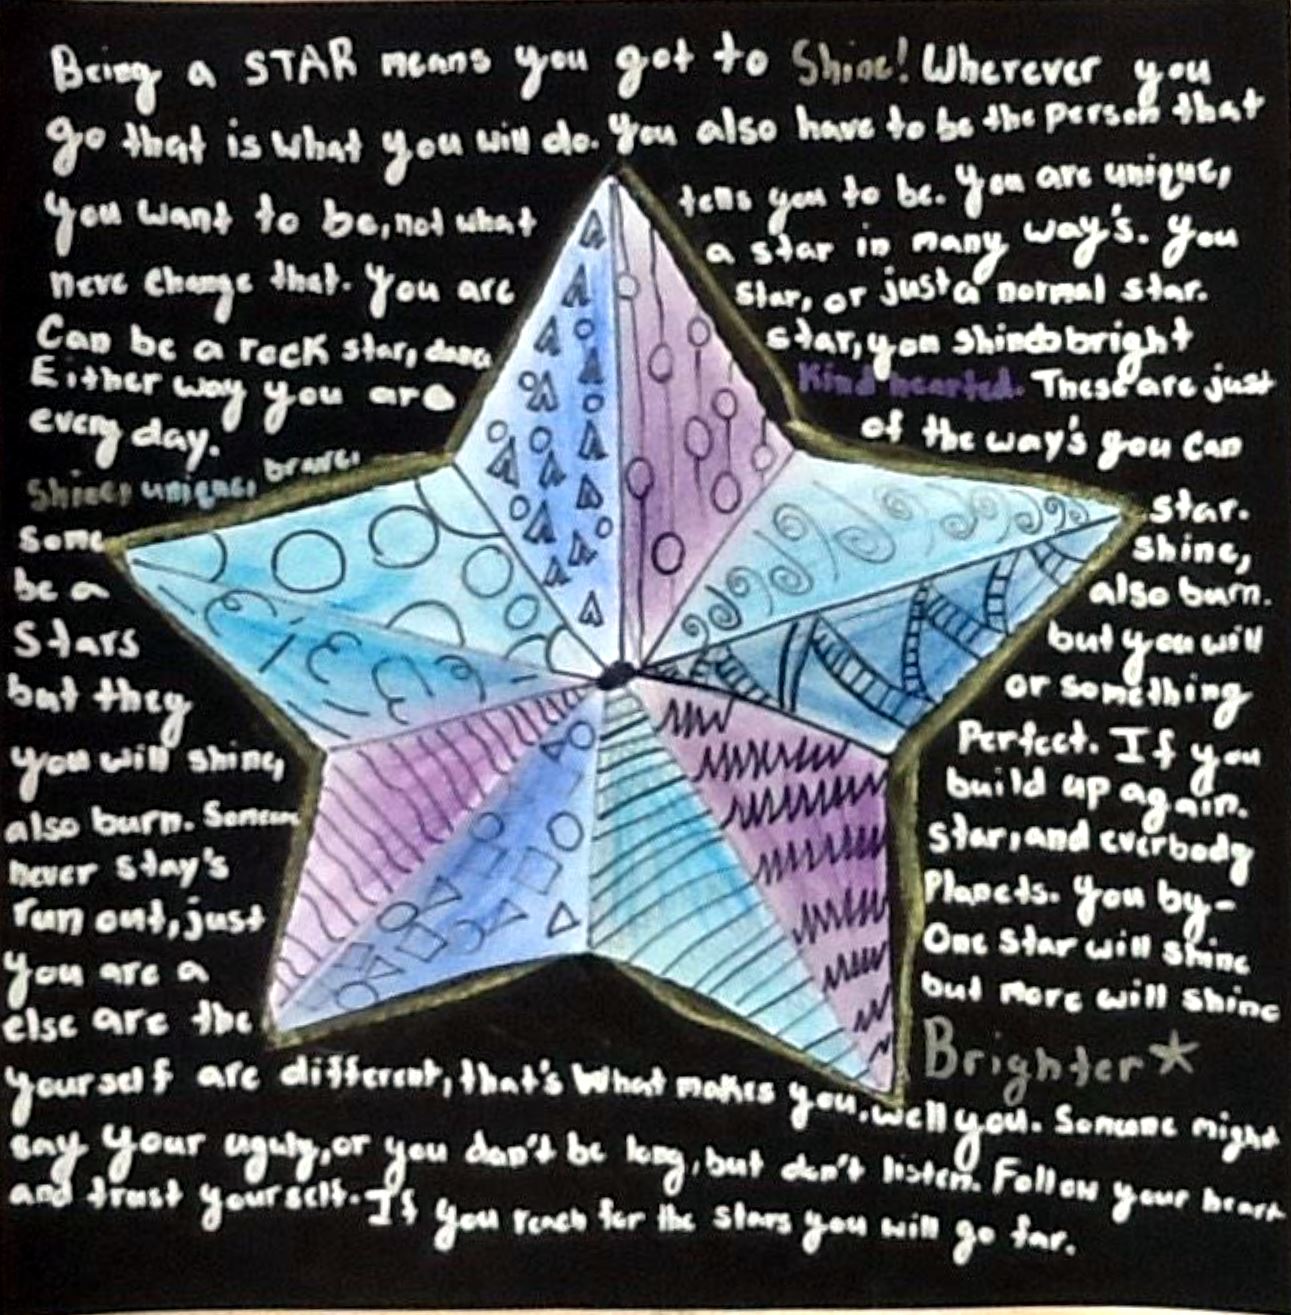 Being a STAR means you got to Shine! Wherever you
go that is what you will do. You also have to be the person that
you want to be, not what tells you to be. You are unique,
neve change that. You are a star in many way's. You
Can be a rock star, dance star, or just a normal star.
Either way you are star, you shine bright
every day. Kind hearted. These are just
Shine, unique, brave, of the way's you can
some star.
be a shine,
Stars also burn.
but they but you will
you will shine, or something
also burn. Someone Perfect. If you
never stay's build up again.
run out, just star, and everbody
you are a Planets. You by-
else are the One star will shine
but more will shine
Brighter
yourself are different, that's what makes you, well you. Someone might
say your uguly, or you don't be long, but don't listen. Follow your heart
and trust yourself. If you reach for the stars you will go far.